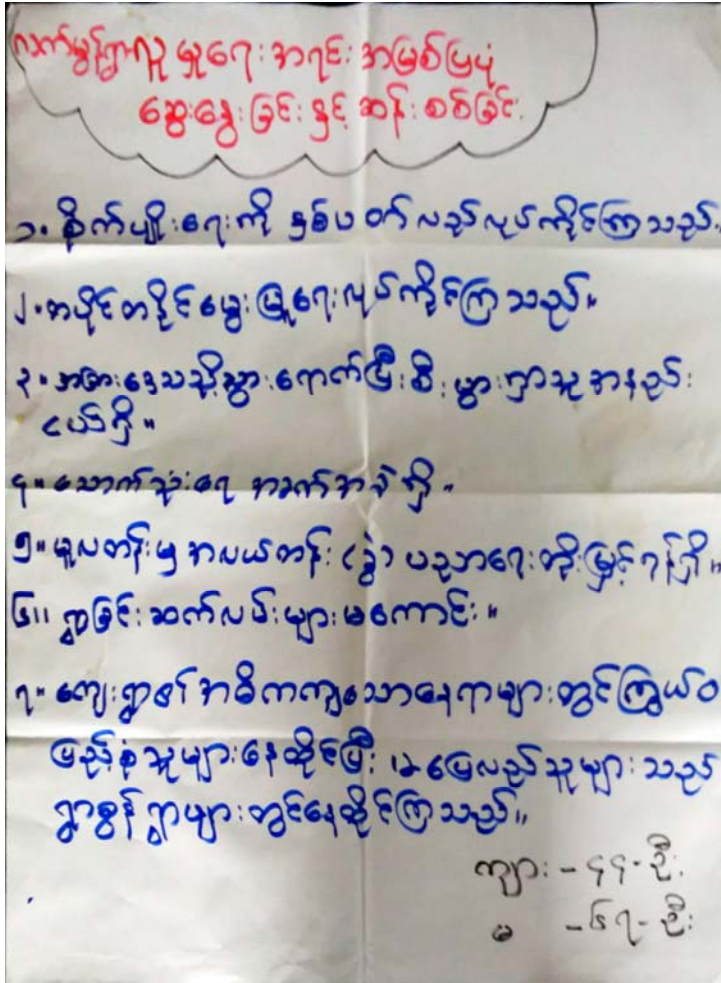 လက်မွန်ရွာလူမှုရေးအရင်းအမြစ်ပြပုံ
ဆွေးနွေးခြင်းနှင့်ဆန်းစစ်ခြင်း
၁။ စိုက်ပျိုးရေးကို နှစ်ပတ်လည်လုပ်ကိုင်ကြသည်။
၂။ တပိုင်တနိုင်မွေးမြူရေးလုပ်ကိုင်ကြသည်။
၃။ အခြားဒေသသို့သွားရောက်ပြီးစီးပွားရှာသူအနည်း
ငယ်ရှိ။
၄။ သောက်သုံးရေ အခက်အခဲရှိ။
၅။ မူလတန်းမှအလယ်တန်း (ခွဲ) ပညာရေးတိုးမြှင့်ရန်ရှိ။
၆။ ရွာချင်းဆက်လမ်းများမကောင်း။
၇။ ကျေးရွာ၏အဓိကကျသောနေရာများတွင်ကြွယ်ဝ
ပြည့်စုံသူများနေထိုင်ပြီး၊ မပြေလည်သူများသည်
ရွာစွန်ရွာများတွင်နေထိုင်ကြသည်။
ကျား - ၄၄ - ဦး
မ - ၆၇ - ဦး